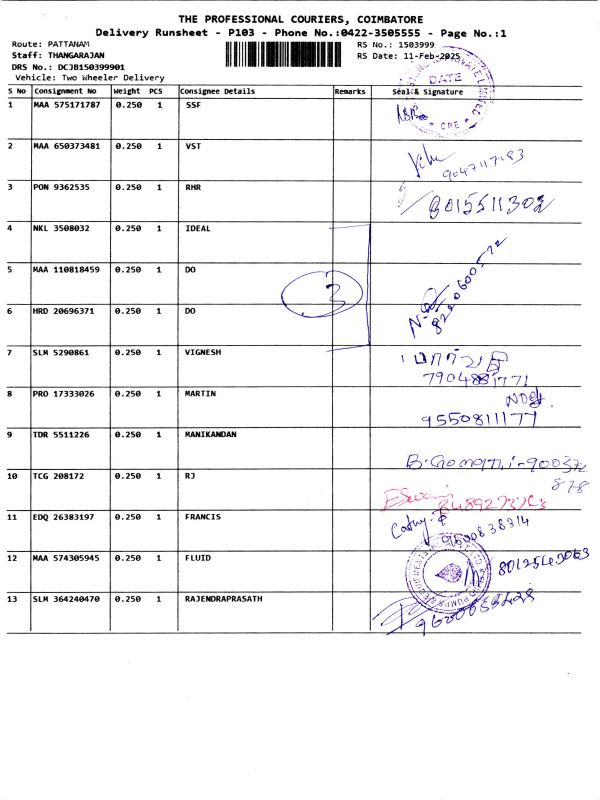 THE PROFESSIONAL COURIERS, COIMBATORE
Delivery Runsheet - P103 - Phone No.:0422-3505555 - Page No.:1
Route: PATTANAM
RS No.: 1503999
Staff: THANGARAJAN
RS Date: 11-Feb-2025
DRS No.: DCJB150399901
Vehicle: Two Wheeler Delivery
DATE
CPE
S No Consignment No Weight PCS Consignee Details Remarks Seal & Signature
1 MAA 575171787 0.250 1 SSF
2 MAA 650373481 0.250 1 VST
9047117183
3 PON 9362535 0.250 1 RHR 8015511302
4 NKL 3508032 0.250 1 IDEAL
5 MAA 110818459 0.250 1 DO 3
6 HRD 20696371 0.250 1 DO
7 SLM 5290861 0.250 1 VIGNESH
7904881771
8 PRO 17333026 0.250 1 MARTIN
9550811177
9 TDR 5511226 0.250 1 MANIKANDAN
B. Gomathi - 900372
878
10 TCG 208172 0.250 1 RJ
11 EDQ 26383197 0.250 1 FRANCIS
9500838314
12 MAA 574305945 0.250 1 FLUID
13 SLM 364240470 0.250 1 RAJENDRAPRASATH